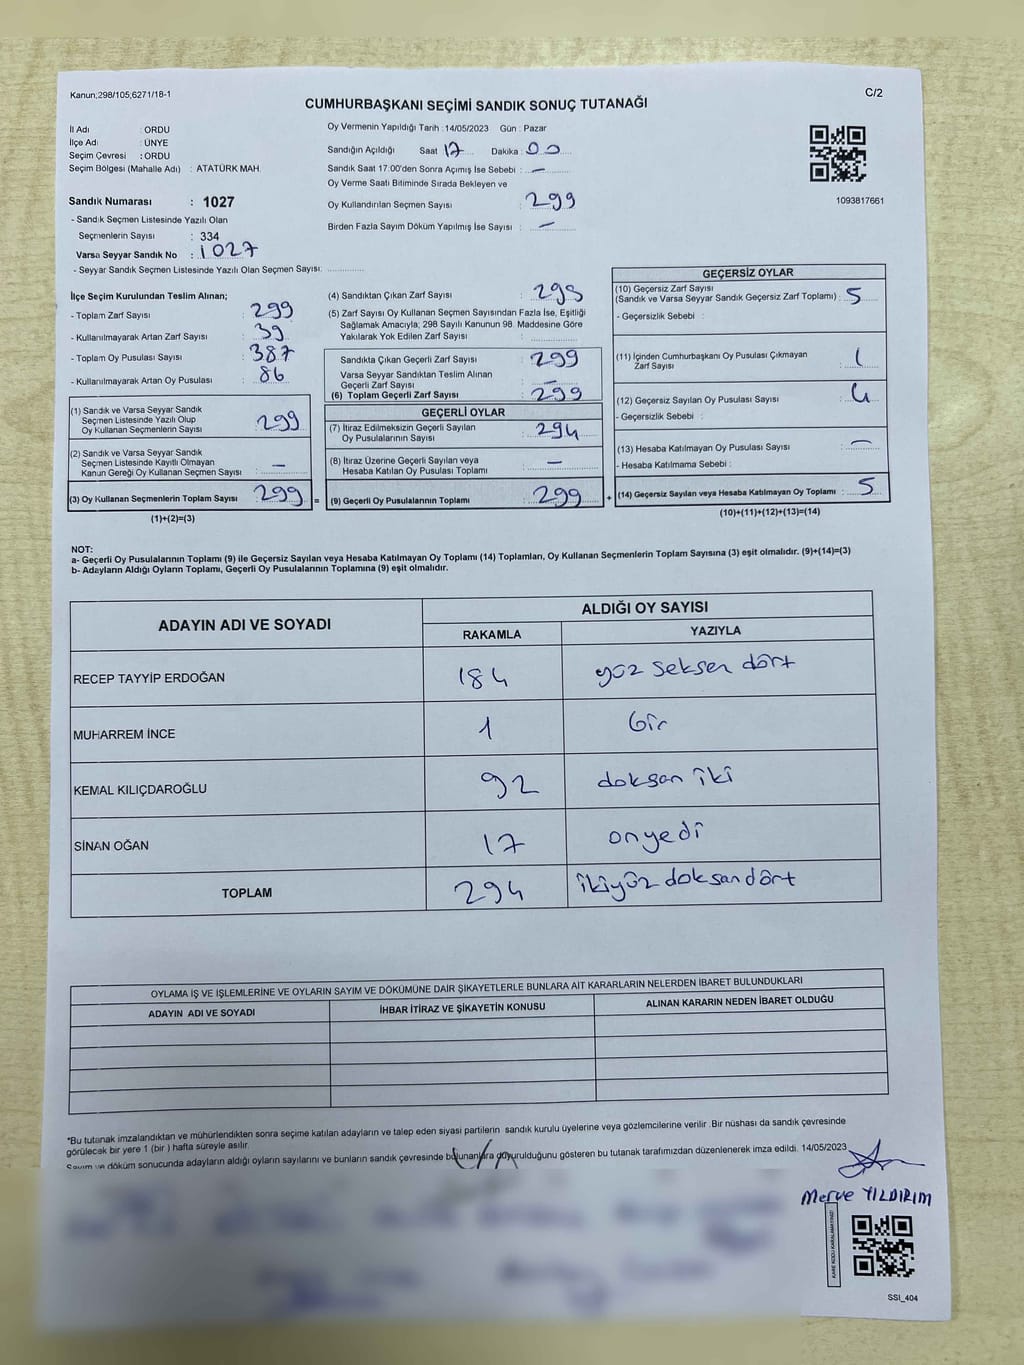 Kanun;298/105;6271/18-1
C/2
CUMHURBAŞKANI SEÇİMİ SANDIK SONUÇ TUTANAĞI
İl Adı : ORDU
İlçe Adı : ÜNYE
Seçim Çevresi : ORDU
Seçim Bölgesi (Mahalle Adı) : ATATÜRK MAH.
Sandık Numarası : 1027
- Sandık Seçmen Listesinde Yazılı Olan
Seçmenlerin Sayısı : 334
Varsa Seyyar Sandık No : 1027
- Seyyar Sandık Seçmen Listesinde Yazılı Olan Seçmen Sayısı:
Oy Vermenin Yapıldığı Tarih : 14/05/2023 Gün : Pazar
Sandığın Açıldığı Saat 17 Dakika : 00
Sandık Saat 17:00'den Sonra Açımış İse Sebebi : —
Oy Verme Saati Bitiminde Sırada Bekleyen ve
Oy Kullandırılan Seçmen Sayısı : 299
Birden Fazla Sayım Döküm Yapılmış İse Sayısı : —
1093817661
İlçe Seçim Kurulundan Teslim Alınan;
- Toplam Zarf Sayısı : 299
- Kullanılmayarak Artan Zarf Sayısı : 39
- Toplam Oy Pusulası Sayısı : 387
- Kullanılmayarak Artan Oy Pusulası : 86
(1) Sandık ve Varsa Seyyar Sandık
Seçmen Listesinde Yazılı Olup
Oy Kullanan Seçmenlerin Sayısı : 299
(2) Sandık ve Varsa Seyyar Sandık
Seçmen Listesinde Kayıtlı Olmayan
Kanun Gereği Oy Kullanan Seçmen Sayısı : —
(3) Oy Kullanan Seçmenlerin Toplam Sayısı : 299 =
(1)+(2)=(3)
(4) Sandıktan Çıkan Zarf Sayısı : 299
(5) Zarf Sayısı Oy Kullanan Seçmen Sayısından Fazla İse, Eşitliği
Sağlamak Amacıyla; 298 Sayılı Kanunun 98. Maddesine Göre
Yakılarak Yok Edilen Zarf Sayısı :
Sandıkta Çıkan Geçerli Zarf Sayısı : 299
Varsa Seyyar Sandıktan Teslim Alınan
Geçerli Zarf Sayısı : —
(6) Toplam Geçerli Zarf Sayısı : 299
GEÇERLİ OYLAR
(7) İtiraz Edilmeksizin Geçerli Sayılan
Oy Pusulalarının Sayısı : 294
(8) İtiraz Üzerine Geçerli Sayılan veya
Hesaba Katılan Oy Pusulası Toplamı : —
(9) Geçerli Oy Pusulalarının Toplamı : 299 +
GEÇERSİZ OYLAR
(10) Geçersiz Zarf Sayısı
(Sandık ve Varsa Seyyar Sandık Geçersiz Zarf Toplamı) : 5
- Geçersizlik Sebebi :
(11) İçinden Cumhurbaşkanı Oy Pusulası Çıkmayan
Zarf Sayısı : 1
(12) Geçersiz Sayılan Oy Pusulası Sayısı : 4
- Geçersizlik Sebebi :
(13) Hesaba Katılmayan Oy Pusulası Sayısı : —
- Hesaba Katılmama Sebebi :
(14) Geçersiz Sayılan veya Hesaba Katılmayan Oy Toplamı : 5
(10)+(11)+(12)+(13)=(14)
NOT:
a- Geçerli Oy Pusulalarının Toplamı (9) ile Geçersiz Sayılan veya Hesaba Katılmayan Oy Toplamı (14) Toplamları, Oy Kullanan Seçmenlerin Toplam Sayısına (3) eşit olmalıdır. (9)+(14)=(3)
b- Adayların Aldığı Oyların Toplamı, Geçerli Oy Pusulalarının Toplamına (9) eşit olmalıdır.
ADAYIN ADI VE SOYADI ALDIĞI OY SAYISI
RAKAMLA YAZIYLA
RECEP TAYYİP ERDOĞAN 184 yüz seksen dört
MUHARREM İNCE 1 bir
KEMAL KILIÇDAROĞLU 92 doksan iki
SİNAN OĞAN 17 onyedi
TOPLAM 294 ikiyüz doksandört
OYLAMA İŞ VE İŞLEMLERİNE VE OYLARIN SAYIM VE DÖKÜMÜNE DAİR ŞİKAYETLERLE BUNLARA AİT KARARLARIN NELERDEN İBARET BULUNDUKLARI
ADAYIN ADI VE SOYADI İHBAR İTİRAZ VE ŞİKAYETİN KONUSU ALINAN KARARIN NEDEN İBARET OLDUĞU
*Bu tutanak imzalandıktan ve mühürlendikten sonra seçime katılan adayların ve talep eden siyasi partilerin sandık kurulu üyelerine veya gözlemcilerine verilir .Bir nüshası da sandık çevresinde
görülecek bir yere 1 (bir ) hafta süreyle asılır.
Sayım ve döküm sonucunda adayların aldığı oyların sayılarını ve bunların sandık çevresinde bulunanlara duyurulduğunu gösteren bu tutanak tarafımızdan düzenlenerek imza edildi. 14/05/2023
Merve YILDIRIM
KARE KODU KARALAMAYINIZ!
SSI_404